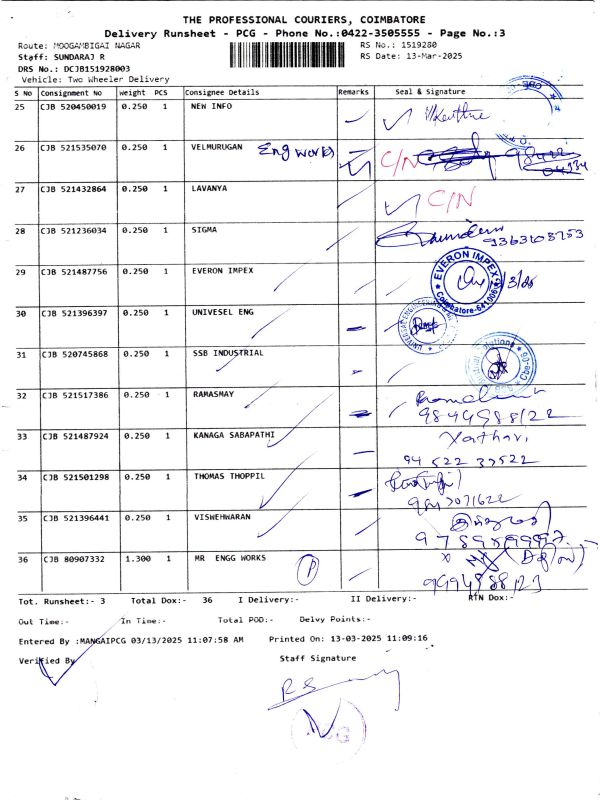 THE PROFESSIONAL COURIERS, COIMBATORE
Delivery Runsheet - PCG - Phone No.:0422-3505555 - Page No.:3
Route: MOOGAMBIGAI NAGAR
RS No.: 1519280
Staff: SUNDARAJ R
RS Date: 13-Mar-2025
DRS No.: DCJB151928003
Vehicle: Two Wheeler Delivery
S No Consignment No Weight PCS Consignee Details Remarks Seal & Signature
25 CJB 520450019 0.250 1 NEW INFO
26 CJB 521535070 0.250 1 VELMURUGAN Eng works C/N
27 CJB 521432864 0.250 1 LAVANYA C/N
28 CJB 521236034 0.250 1 SIGMA
29 CJB 521487756 0.250 1 EVERON IMPEX EVERON IMPEX Coimbatore-641006
30 CJB 521396397 0.250 1 UNIVESEL ENG
31 CJB 520745868 0.250 1 SSB INDUSTRIAL
32 CJB 521517386 0.250 1 RAMASMAY
33 CJB 521487924 0.250 1 KANAGA SABAPATHI
34 CJB 521501298 0.250 1 THOMAS THOPPIL
35 CJB 521396441 0.250 1 VISWEHWARAN
36 CJB 80907332 1.300 1 MR ENGG WORKS P
9994988123
Tot. Runsheet:- 3 Total Dox:- 36 I Delivery:- II Delivery:- RTN Dox:-
Out Time:- In Time:- Total POD:- Delvy Points:-
Entered By :MANGAIPCG 03/13/2025 11:07:58 AM Printed On: 13-03-2025 11:09:16
Verified By
Staff Signature